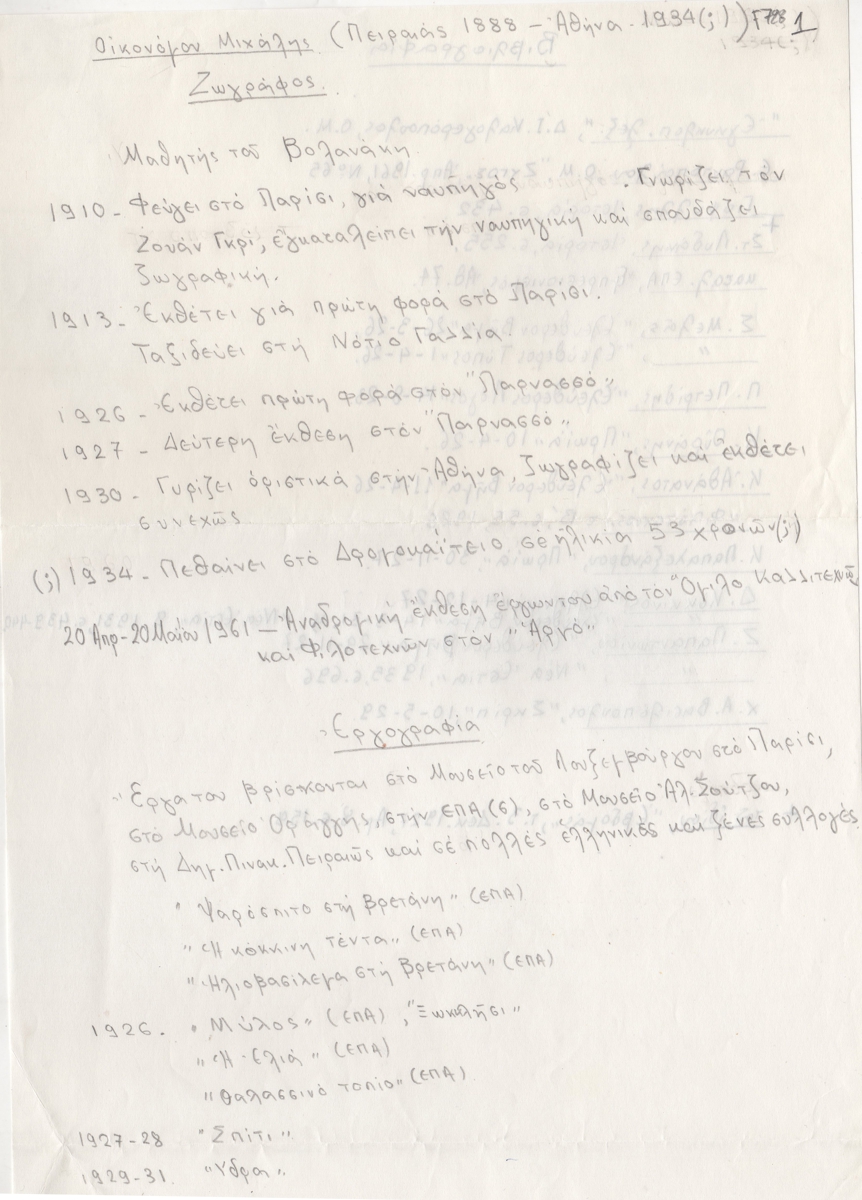 Οἰκονόμου Μιχάλης (Πειραιάς 1888 - Ἀθήνα - 1934(;)) Γ728 1
Ζωγράφος
Μαθητής τοῦ Βολανάκη
1910 - Φεύγει στό Παρίσι, γιά ναυπηγός . Γνωρίζει τόν
Ζουάν Γκρί, ἐγκαταλείπει τήν ναυπηγική καί σπουδάζει
ζωγραφική.
1913 - Ἐκθέτει γιά πρώτη φορά στό Παρίσι.
Ταξιδεύει στή Νότιο Γαλλία.
1926 - Ἐκθέτει πρώτη φορά στόν "Παρνασσό"
1927 - Δεύτερη ἔκθεση στόν "Παρνασσό"
1930 - Γυρίζει ὁριστικά στήν Ἀθήνα, ζωγραφίζει καί ἐκθέτει
συνεχῶς
(;) 1934 - Πεθαίνει στό Δρομοκαΐτειο σέ ἡλικία 53 χρονῶν(;)
20 Απρ - 20 Μαΐου 1961 - Ἀναδρομική ἔκθεση ἔργων του ἀπό τόν Ὅμιλο Καλλιτεχνῶν
καί Φιλοτεχνῶν στόν "Ἀργό"
Ἐργογραφία
Ἔργα του βρίσκονται στό Μουσεῖο τοῦ Λουξεμβούργου στό Παρίσι,
στό Μουσεῖο Ὀράγγης, στήν ΕΠΑ (6), στό Μουσεῖο Ἀλ. Σούτζου,
στή Δημ. Πινακ. Πειραιῶς καί σέ πολλές ἑλληνικές καί ξένες συλλογές
"Ψαρόσπιτο στή Βρετάνη" (ΕΠΑ)
"Ἡ κόκκινη τέντα" (ΕΠΑ)
"Ἡλιοβασίλεμα στή Βρετάνη" (ΕΠΑ)
1926. "Μύλος" (ΕΠΑ), "Ξωκλῆσι"
"Ἡ Ἐλιά" (ΕΠΑ)
"Θαλασσινό τοπίο" (ΕΠΑ)
1927-28 "Σπίτι"
1929-31. "Υδρα"